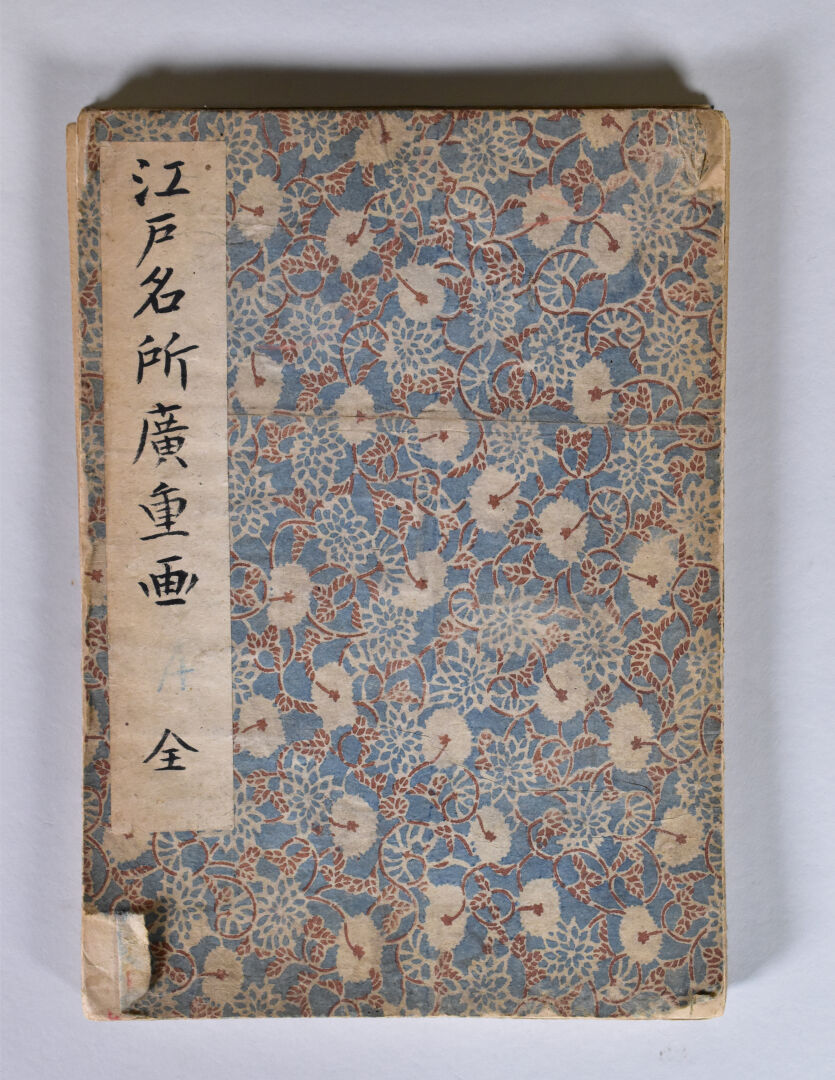 江戸名所廣重画
全